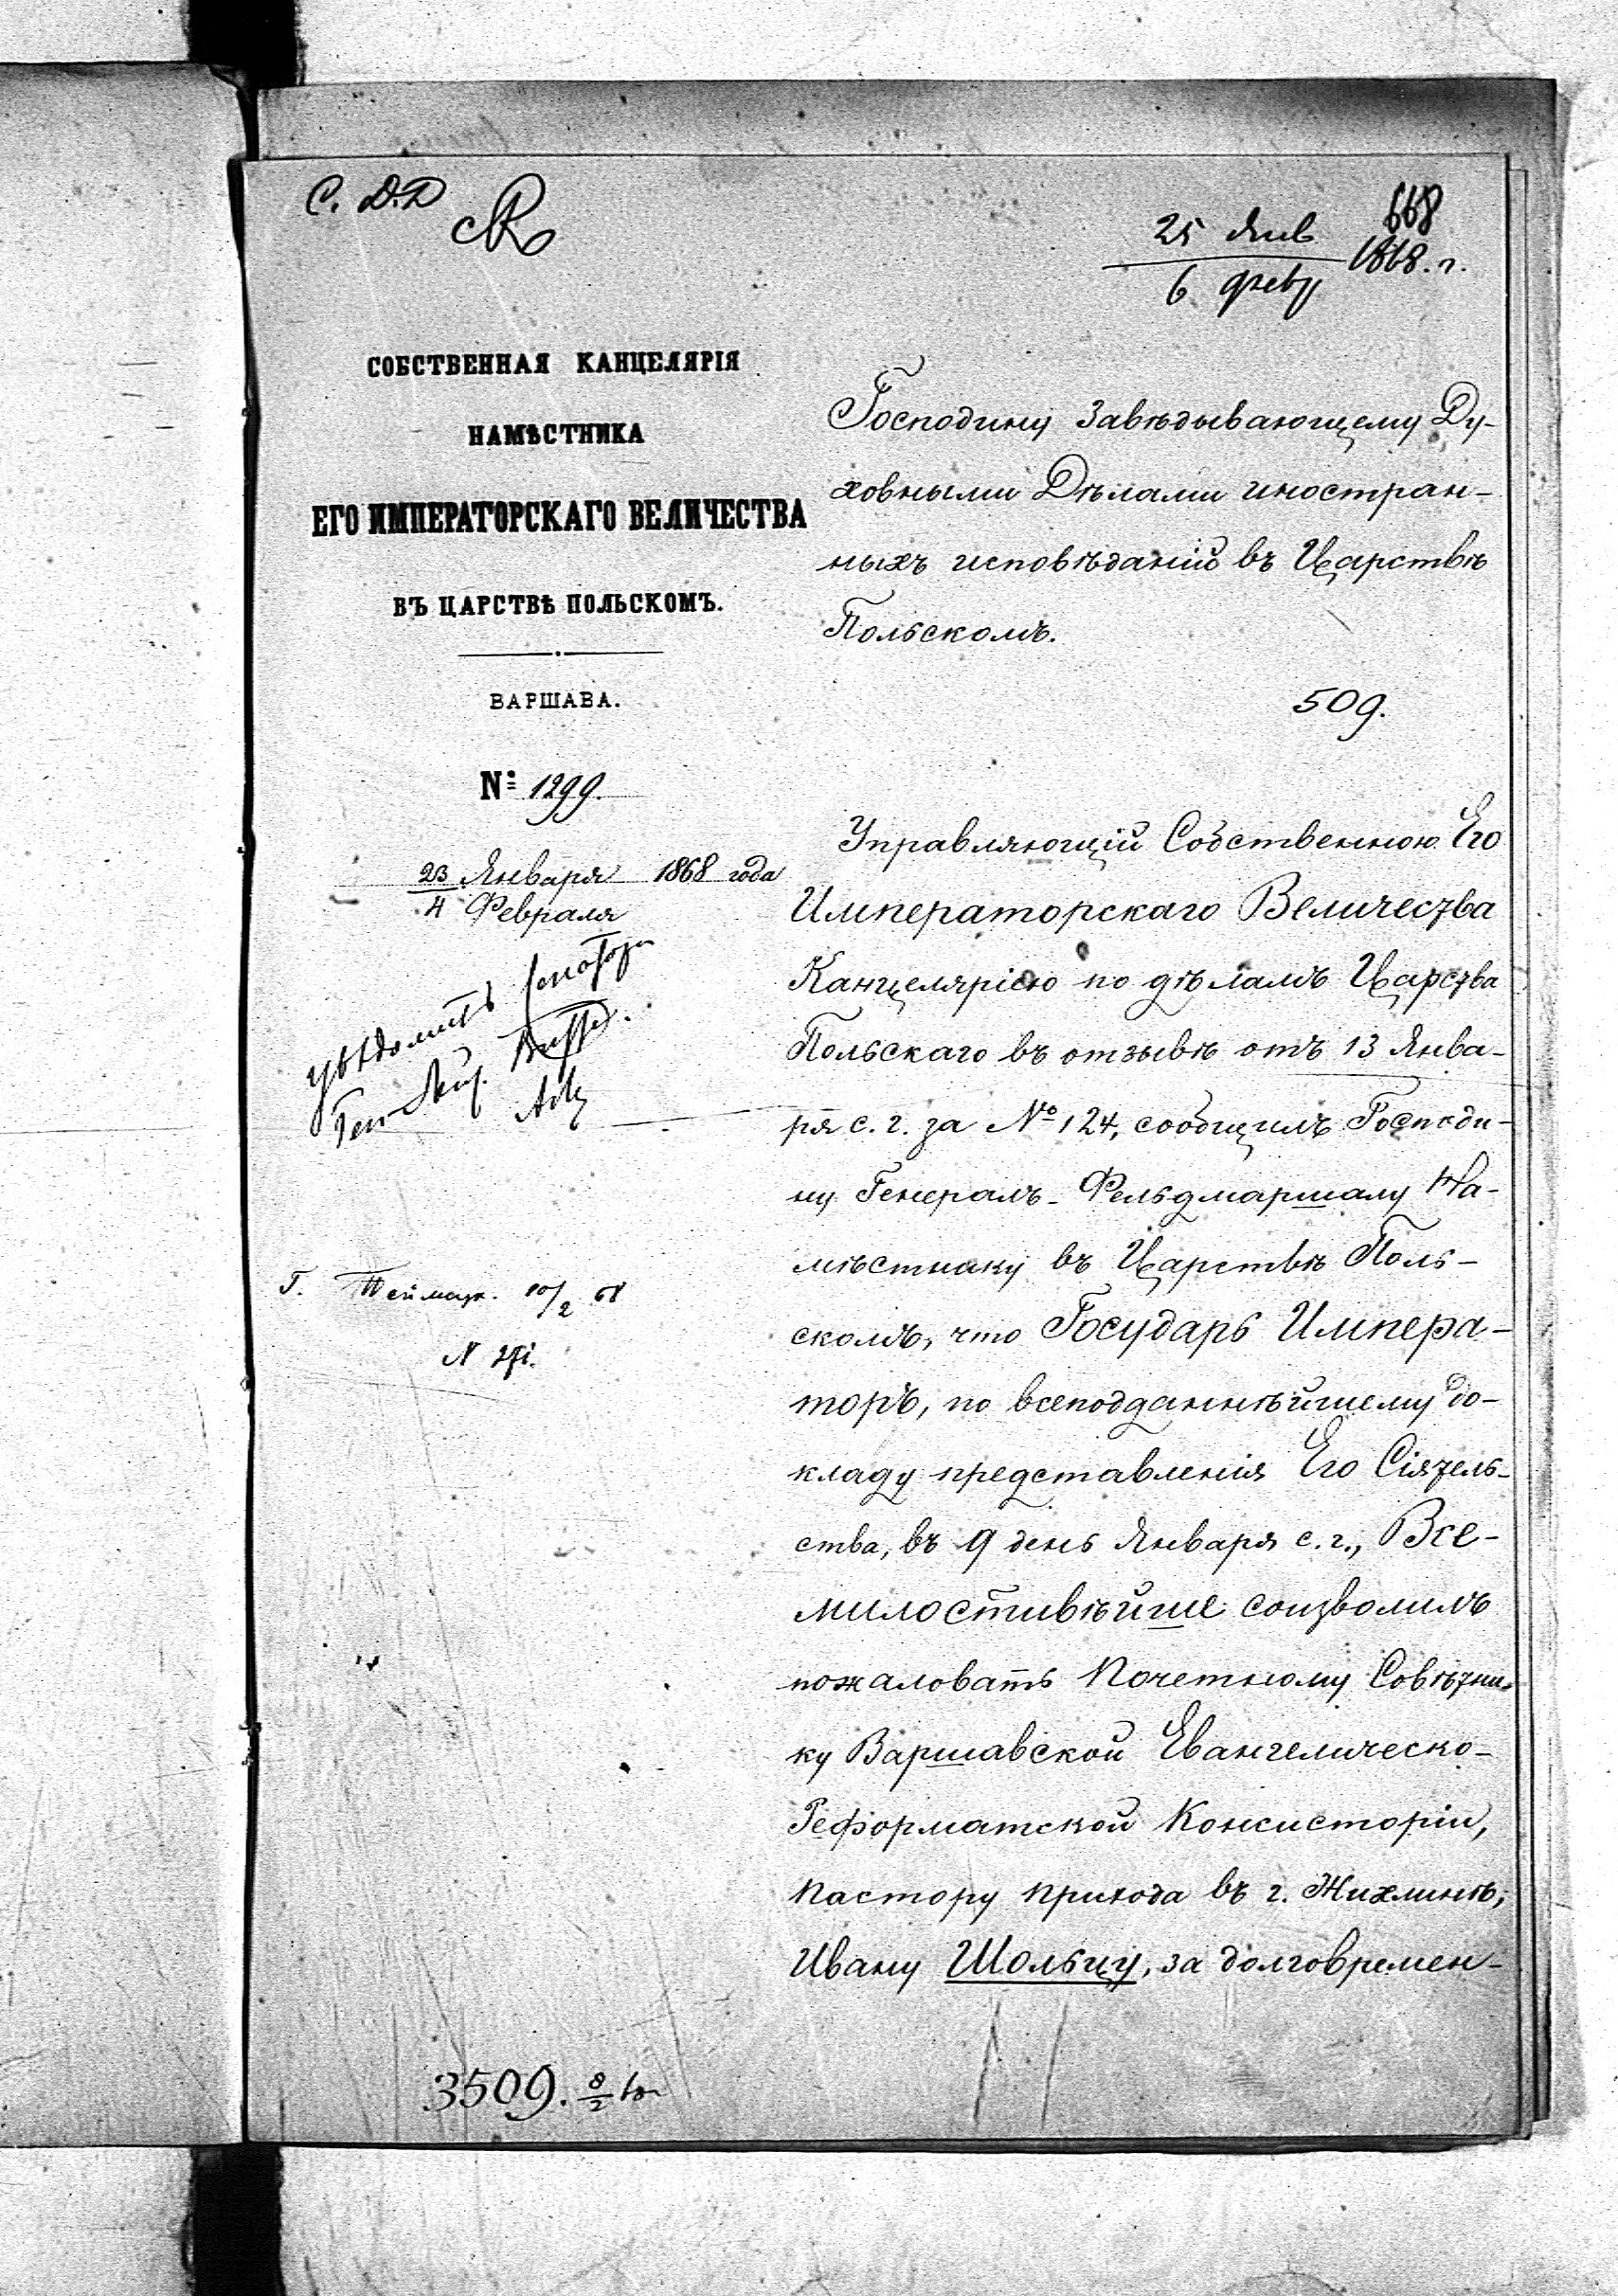 С. Д.Д
668
25 Янв
1868. г.
6 февр
СОБСТВЕННАЯ КАНЦЕЛЯРІЯ
НАМѢСТНИКА
ЕГО ИМПЕРАТОРСКАГО ВЕЛИЧЕСТВА
ВЪ ЦАРСТВѢ ПОЛЬСКОМЪ.
ВАРШАВА.
№ 1299.
23 Января 1868 года
4 Февраля
увѣдомить
Ген
Г.
10/2 68
N
3509. 8/2
Господину Завѣдывающему Ду-
ховными Дѣлами иностран-
ныхъ исповѣданій въ Царствѣ
Польскомъ.
509.
Управляющій Собственною Его
Императорскаго Величества
Канцеляріею по дѣламъ Царства
Польскаго въ отзывѣ отъ 13 Янва-
ря с. г. за № 124, сообщилъ Господи-
ну Генералъ-Фельдмаршалу На-
мѣстнику въ Царствѣ Поль-
скомъ, что Государь Импера-
торъ, по всеподданнѣйшему до-
кладу представленія Его Сіятель-
ства, въ 9 день Января с. г., Все-
милостивѣйше соизволилъ
пожаловать Почетному Совѣтни-
ку Варшавской Евангелическо-
Реформатской Консисторіи,
Пастору прихода въ г. Жихлинѣ,
Ивану Шольцу, за долговремен-